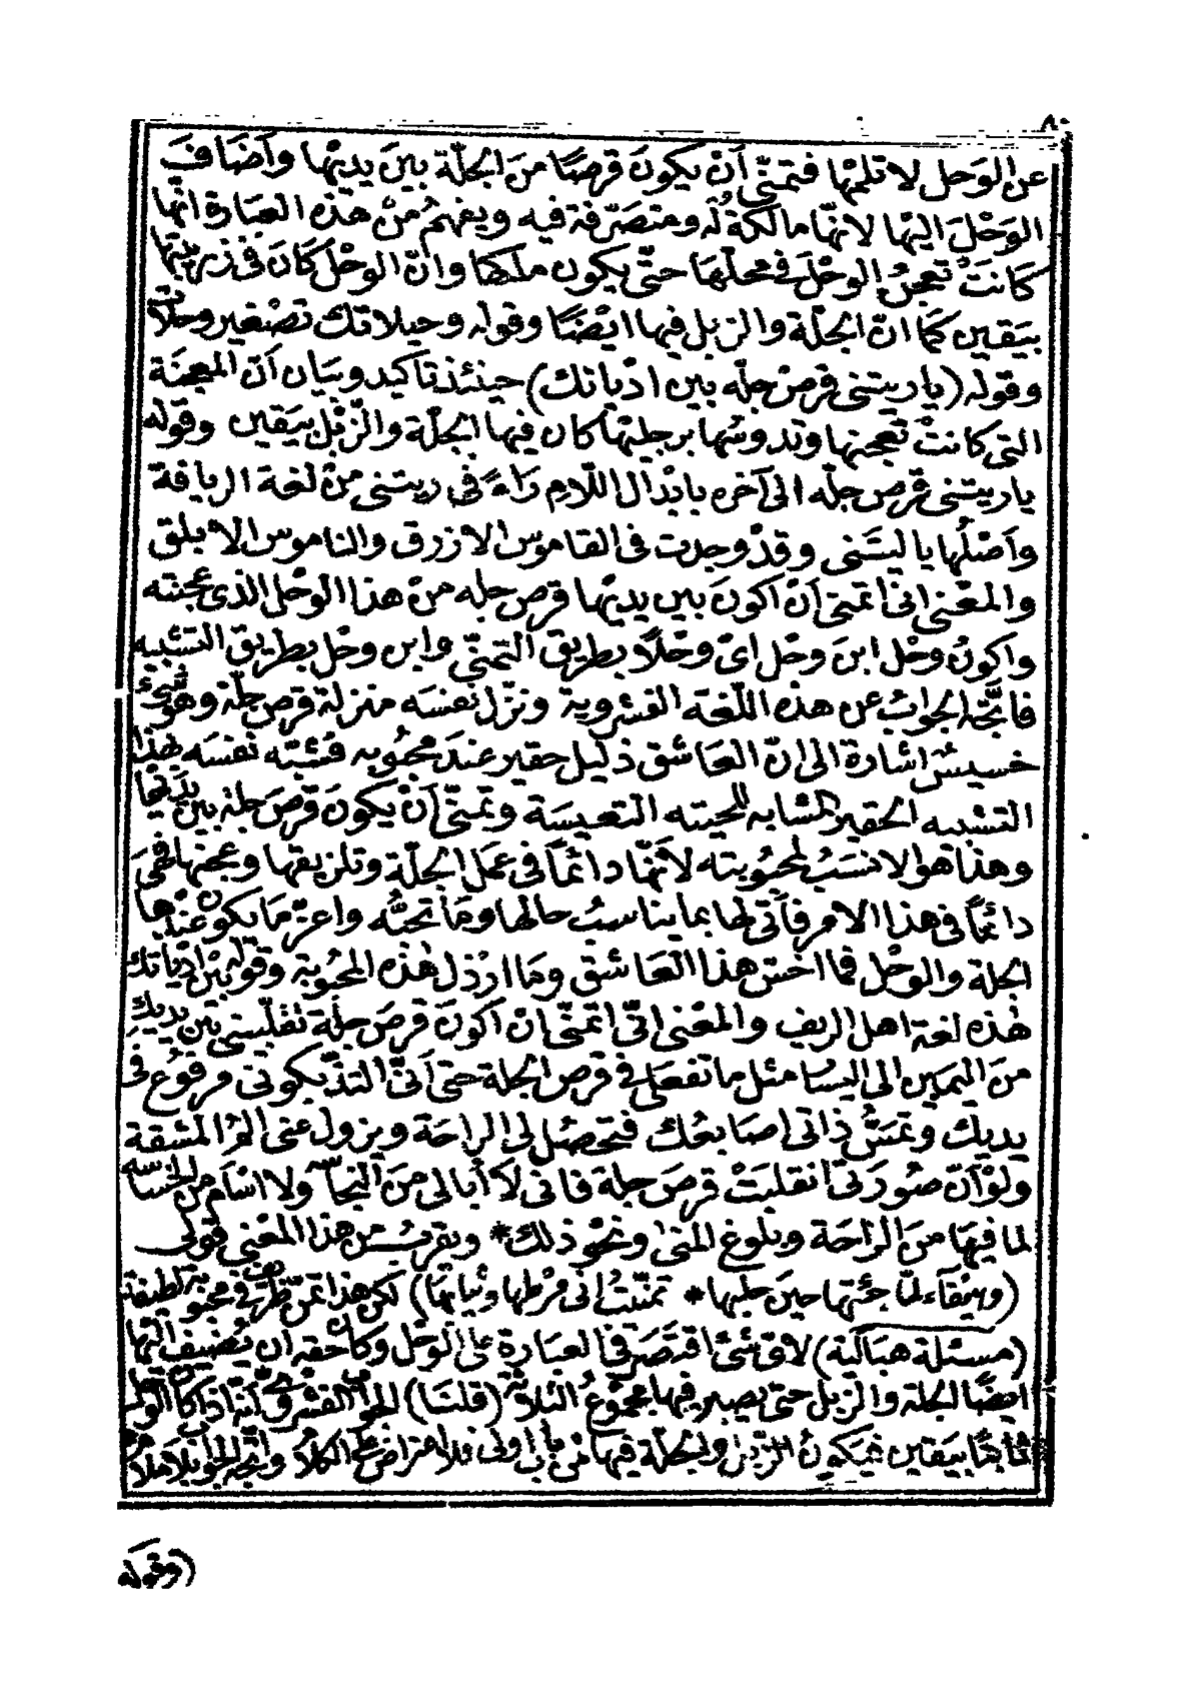 ٨٠
عن الوَحل لا تلمْها فتمنّى أنْ يكونَ قرصًا منَ الجلّة بينَ يديْها وأضافَ
الوَحْلَ اليْها لانّها مالكةٌ لهُ ومتصرّفة فيه ويفهمُ منْ هذه العبارة انّها
كانَتْ تعجنُ الوحْلَ في محلّها حتّى يكون ملكها وانّ الوحْلَ كانَ في زريبتها
بيَقين كمَا انّ الجلّة والزبل فيها ايْضًا وقوله وحيلاتك تصْغير وحْلات
وقوله (ياريتنى قرصْ جلّه بين ادْياتك) حينئذ تأكيد وبيان أنّ المعجنَة
التى كانتْ تعْجنها وتدوسُها برجليْها كان فيها الجلّة والزّبْل بيَقين وقوله
ياريتنى قرص جلّه الى آخره بابْدال اللّام رَاءً فى ريتنى منْ لغة الريافة
وأصْلُها ياليتَنى وقدْ وجدت فى القاموس الازرق والناموس الأبلق
والمعْنى انى اتمنى أنْ أكونَ بين يديْها قرص جله منْ هذا الوحْل الذى عجنته
واكونُ وحْل ابنَ وحْل اىْ وحْلاً بطريق التمنّى وابن وحْل بطريق التشبيه
فاتّجه الجوابُ عن هذه اللّغة الفشروية ونزّل نفسَه منزلة قرص جلّة وهُو شئ
خسيسٌ اشارة الى انّ العاشق ذليل حقير عندَ محبُوبه فشبّه نفسَه بهذا
التشبيه الحقير المشابه للحيته التعيسَة وتمنّى أنْ يكونَ قرصَ جلة بين يديْها
وهذا هو الانسَبُ لمحبُوبته لأنهّا دائماً فى عمَل الجلّة وتلزيقها وعجنها فهىَ
دائماً فى هذا الامر فأتى لها بما يناسبُ حالها ومَا تحبُّه واعزّ مَا يكون عنْدها
الجلة والوحْل فما اخسّ هذا العَاشق ومَا ارْذل هٰذه المحْبوبة وقوله بيْن ادْياتك
هٰذه لغة اهل الريف والمعْنى انّى اتمنّى انْ أكونَ قرصَ جلّة تقلّبينى بيْن يديك
منَ اليمين الى اليسار مثل ما تفعلى في قرص الجلة حتى أنّى التذّ بكونى مرفوعٌ فى
يديك وتمسُّ ذاتى اصابعُك فتحصُل لى الراحَة ويزول عنى المُ المشقة
ولوْ أنّ صُورَتى انقلبَتْ قرصَ جلة فانى لاَ أبالى منَ النجاسَة ولا اسْأم من الخساسه
لما فيهَا منَ الراحَة وبلوغ المنٰى ونحْو ذلك * ويقربُ من هذا المعْنى قولى
(وهيْفآء لمّا جئتها حينَ حلبها * تمنّيْتُ انى مرطها وثيابهَا) لكن هذا تمنّ ظريف فى محبوبة لطيفة
(مسئلة هبَالية) لاىّ شئ اقتصَرَ فى العبارة على الوحْل وكانَ حقه ان يُضيف اليْها
ايضًا الجلة والزبل حتى يصير فيها مجمُوعُ الثلاثة (قلنَا) الجوابُ الفشروى أنّه اذا كانَ الوحل
ثابتًا بيَقين فيَكونُ الزبل والجلّة فيها منْ باب اولى فلا اعتراض على الكلام واتّجه الجواب بلا ملام
(وقوله